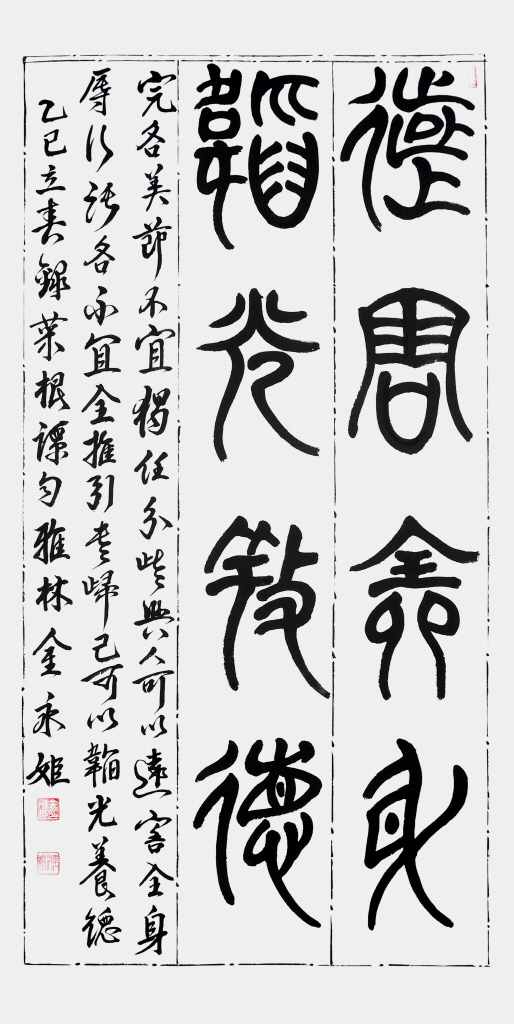 遠害全身
韜光養德
完名美節不宜獨任分些與人可以遠害全身
辱行汚名不宜全推引些歸己可以韜光養德
乙巳立春錄菜根譚句雅林金永姬